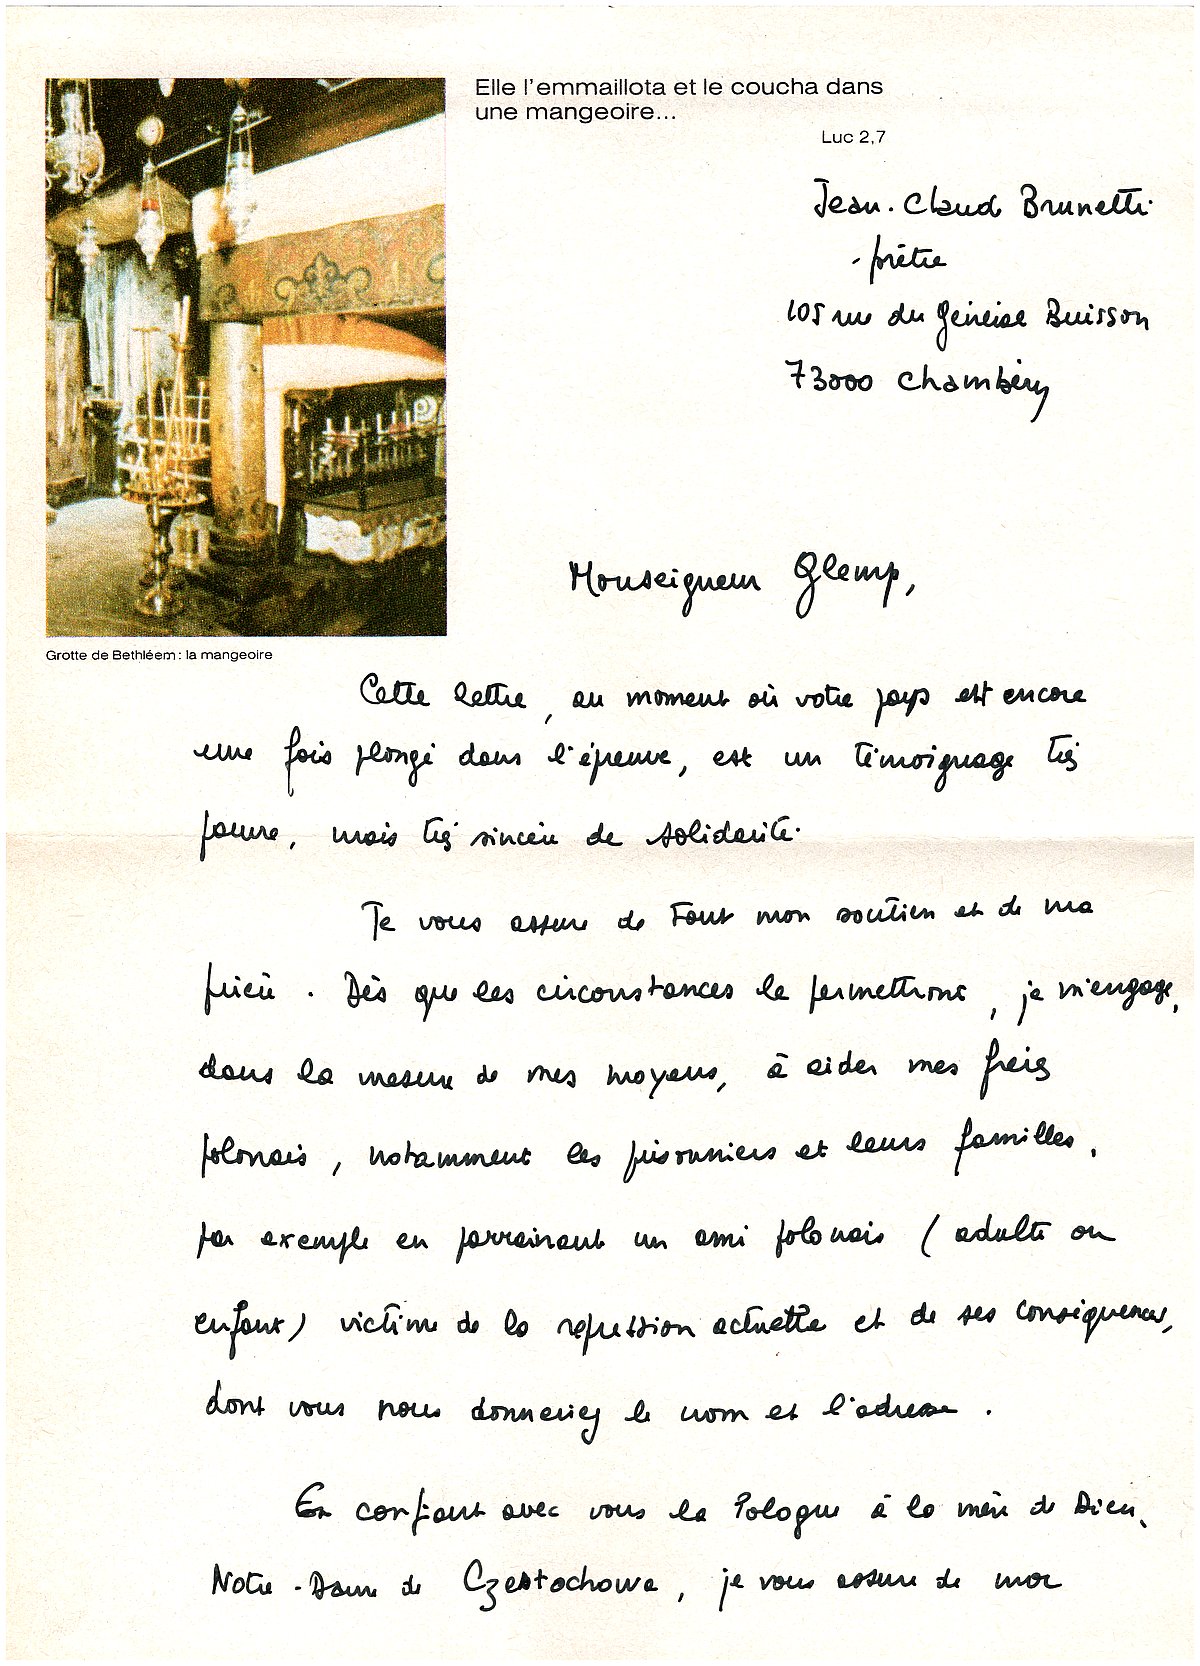 Elle l'emmaillota et le coucha dans
une mangeoire...
Luc 2,7
Jean-Claude Brunetti
- prêtre
105 rue du Général Buisson
73000 Chambéry
Grotte de Bethléem : la mangeoire
Monseigneur Glemp,
Cette lettre, au moment où votre pays est encore
une fois plongé dans l'épreuve, est un témoignage très
pauvre, mais très sincère de solidarité.
Je vous assure de tout mon soutien et de ma
prière. Dès que les circonstances le permettront, je m'engage,
dans la mesure de mes moyens, à aider mes frères
polonais, notamment les prisonniers et leurs familles,
par exemple en parrainant un ami polonais (adulte ou
enfant) victime de la répression actuelle et de ses conséquences,
dont vous nous donneriez le nom et l'adresse.
En confiant avec vous la Pologne à la mère de Dieu,
Notre-Dame de Czestochowa, je vous assure de mon